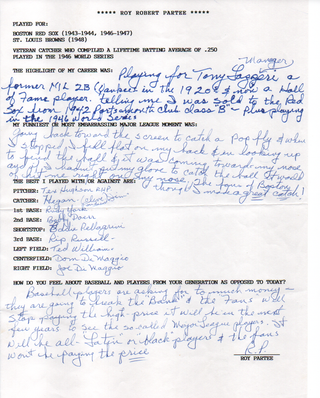 ***** ROY ROBERT PARTEE *****
PLAYED FOR:
BOSTON RED SOX (1943-1944, 1946-1947)
ST. LOUIS BROWNS (1948)
VETERAN CATCHER WHO COMPILED A LIFETIME BATTING AVERAGE OF .250
PLAYED IN THE 1946 WORLD SERIES
Manager
THE HIGHLIGHT OF MY CAREER WAS: Playing for Tony Lazzeri a
former ML 2B Yankees in the 1920's & now a Hall
of Fame player. telling me I was sold to the Red
Sox from 1942 Portsmouth Club Class "B" - Plus playing
in the 1946 World Series
MY FUNNIEST OR MOST EMBARRASSING MAJOR LEAGUE MOMENT WAS:
Going back toward the screen to catch a pop fly & when
I stopped I fell flat on my back & in looking up
to find the ball & it was coming toward my nose
my glove to catch the ball it would
hit me right my nose. The fans of Boston
THE BEST I PLAYED WITH/OR AGAINST ARE: thought I made a great catch!
PITCHER: Tex Hughson RHP
CATCHER: Hegan (Jim)
1st BASE: Rudy York
2nd BASE: Bobby Doerr
SHORTSTOP: Eddie Pellagrini
3rd BASE: Rip Russell -
LEFT FIELD: Ted Williams
CENTERFIELD: Dom DiMaggio
RIGHT FIELD: Joe DiMaggio
HOW DO YOU FEEL ABOUT BASEBALL AND PLAYERS FROM YOUR GENERATION AS OPPOSED TO TODAY?
Baseball players are asking for to much money -
they are going to break the & the fans will
stop paying the high price it will be in the next
few years to see the so called Major League players. It
will be all - Latin or black players & the fans
wont be paying the price
R.P.
ROY PARTEE